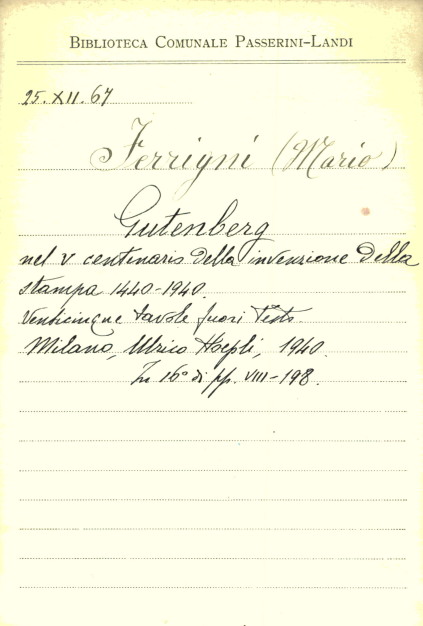 BIBLIOTECA COMUNALE PASSERINI-LANDI
25.XII.67
Ferrigni (Mario)
Gutenberg
nel V centenario della invenzione della
stampa 1440-1940.
Venticinque tavole fuori testo.
Milano, Ulrico Hoepli, 1940.
In 16° di pp. VIII-198.